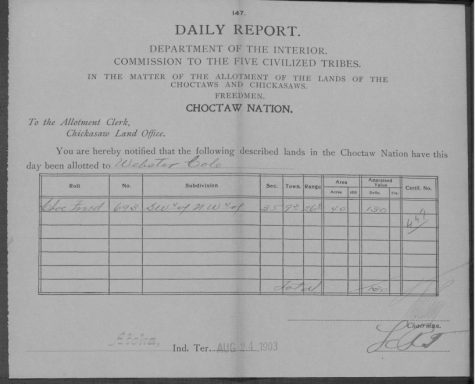 147.
DAILY REPORT.
DEPARTMENT OF THE INTERIOR.
COMMISSION TO THE FIVE CIVILIZED TRIBES.
IN THE MATTER OF THE ALLOTMENT OF THE LANDS OF THE
CHOCTAWS AND CHICKASAWS.
FREEDMEN.
CHOCTAW NATION.
To the Allotment Clerk,
Chickasaw Land Office.
You are hereby notified that the following described lands in the Choctaw Nation have this
day been allotted to Webster Cole
Roll No. Subdivision Sec. Town. Range Area Appraised Value Certf. No.
Acres 100 Dolls. Cts.
Choc Freed 693 SW4 of NW4 of 40 130
Total 130
Atoka, Ind. Ter. AUG 24 1903